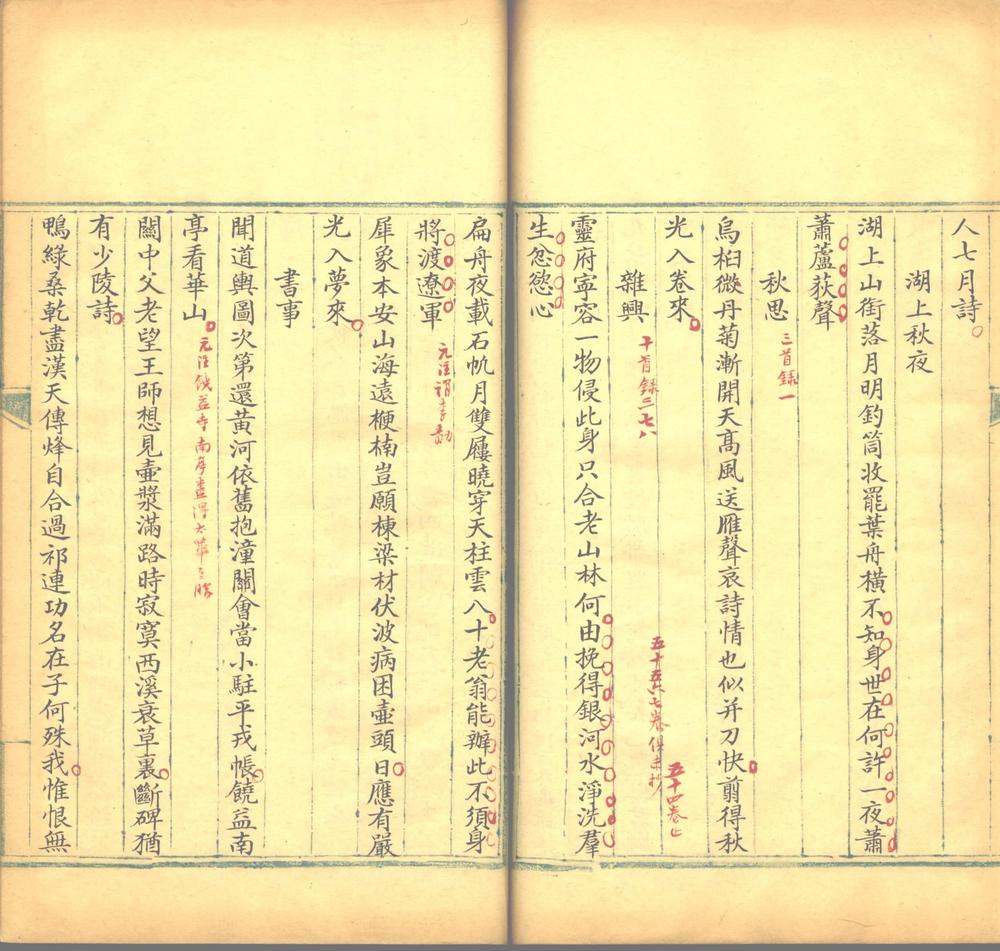 人七月詩
湖上秋夜
湖上山銜落月明釣筒收罷葉舟橫不知身世在何許一夜蕭
蕭蘆荻聲
秋思
三首錄一
烏桕微丹菊漸開天高風送雁聲哀詩情也似并刀快翦得秋
光入卷來
五十四卷止
五十五六七卷俱未抄
雜興
十首錄三七八
靈府寧容一物侵此身只合老山林何由挽得銀河水淨洗羣
生忿慾心
扁舟夜載石帆月雙屨曉穿天柱雲八十老翁能辦此不須身
將渡遼軍
元注謂李勣
犀象本安山海遠楩楠豈願棟梁材伏波病困壺頭日應有嚴
光入夢來
書事
聞道輿圖次第還黃河依舊抱潼關會當小駐平戎帳饒益南
亭看華山
元注饒益寺南亭盡得太華之勝
關中父老望王師想見壺漿滿路時寂寞西溪衰草裏斷碑猶
有少陵詩
鴨綠桑乾盡漢天傳烽自合過祁連功名在子何殊我惟恨無